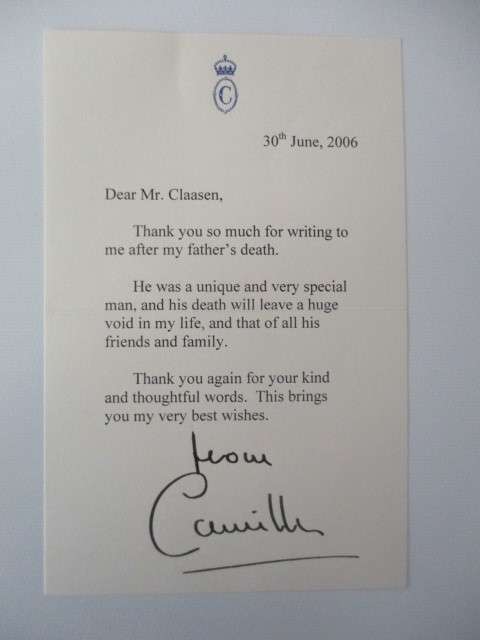 C
30th June, 2006
Dear Mr. Claasen,
Thank you so much for writing to
me after my father's death.
He was a unique and very special
man, and his death will leave a huge
void in my life, and that of all his
friends and family.
Thank you again for your kind
and thoughtful words.  This brings
you my very best wishes.
from
Camilla